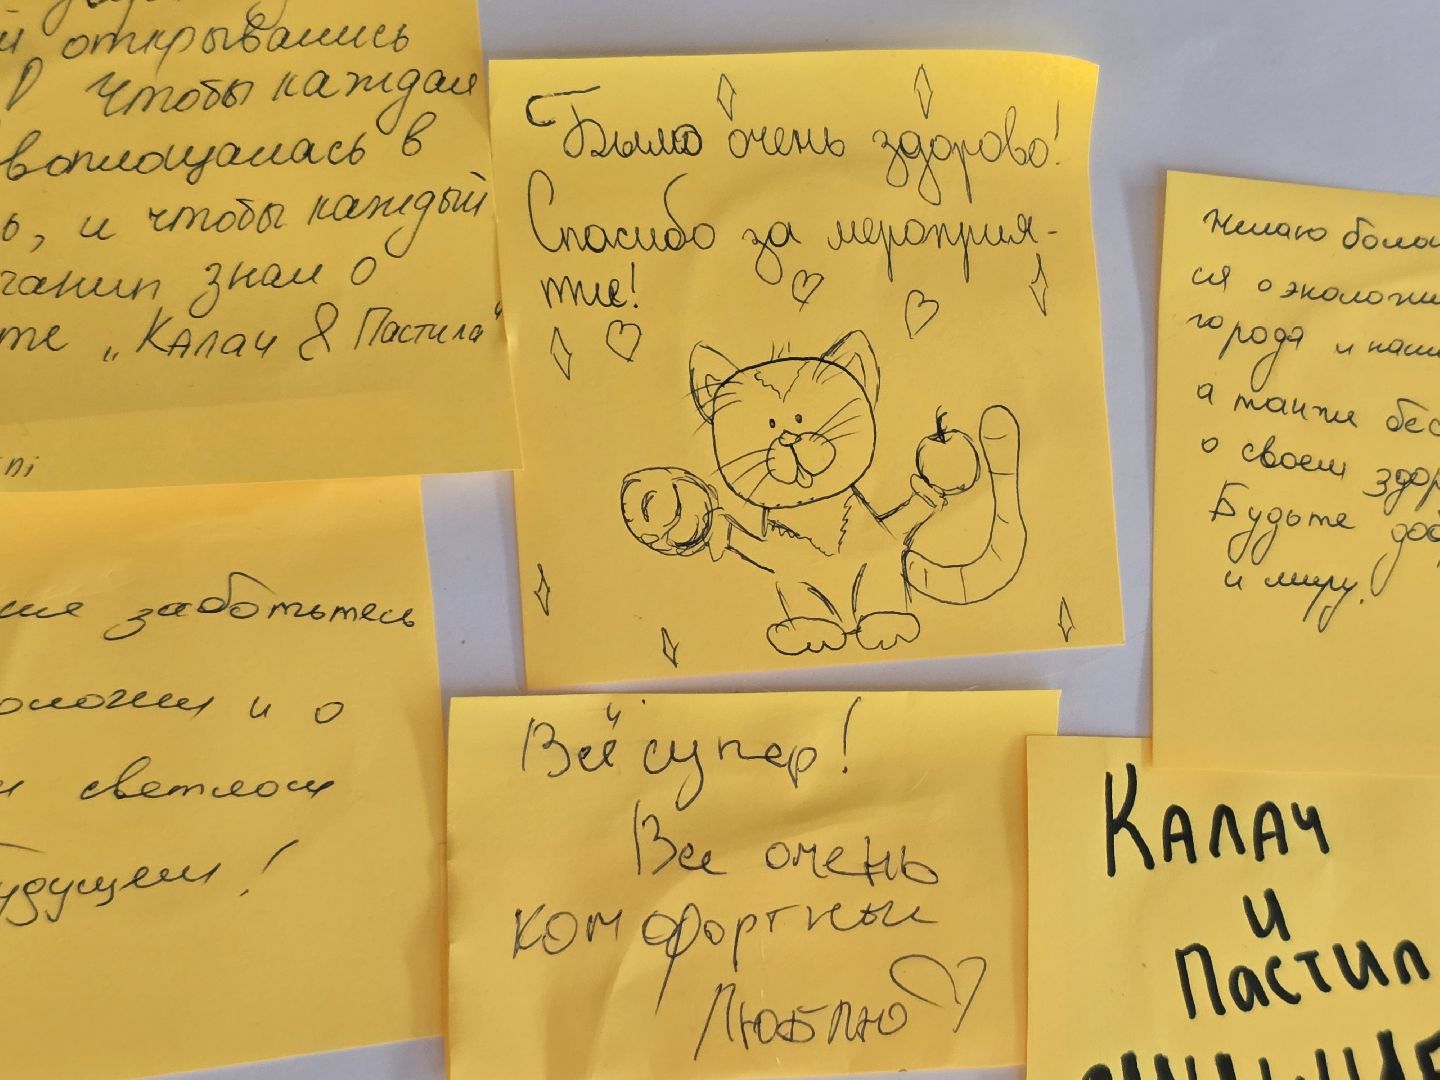 открывались
чтобы каждая
воплощалась в
ь, и чтобы каждый
знал о
те „Калач & Пастила“
Было очень здорово!
Спасибо за мероприя-
тие!
Желаю
ся о экологии
города и наш
а также бес
о своем здор
Будьте доб
и миру.
заботьтесь
и о
светлом
удущем!
Всё супер!
Вы очень
комфортные
Люблю
Калач
и
Пастил